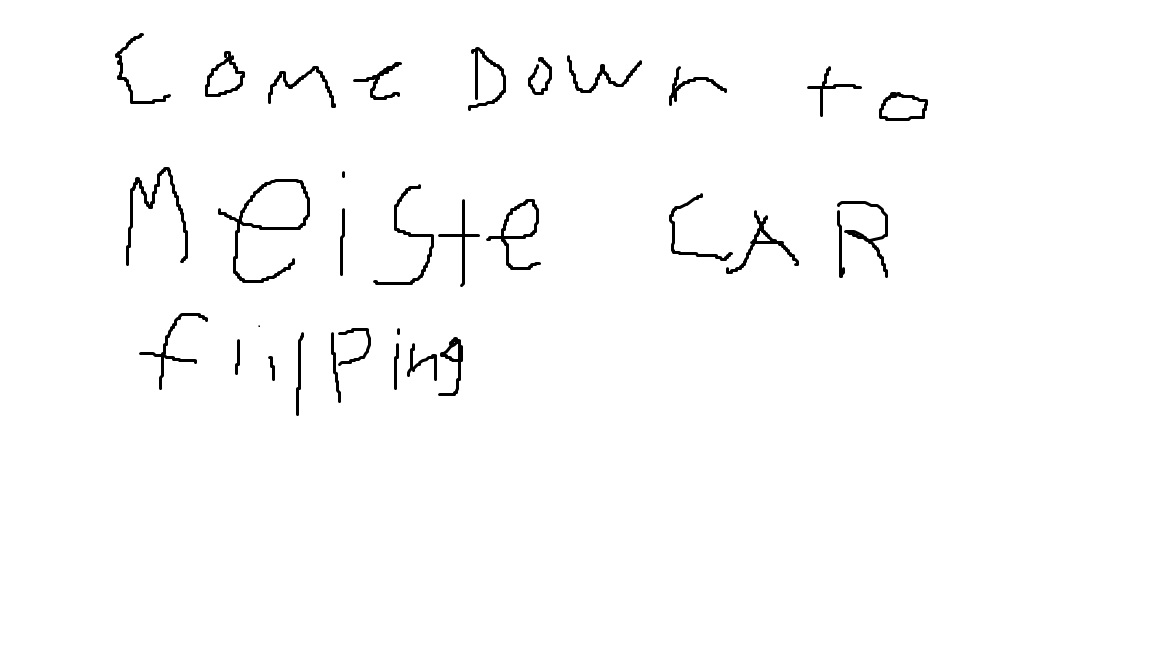 Come Down to
Meiste CAR
flipping